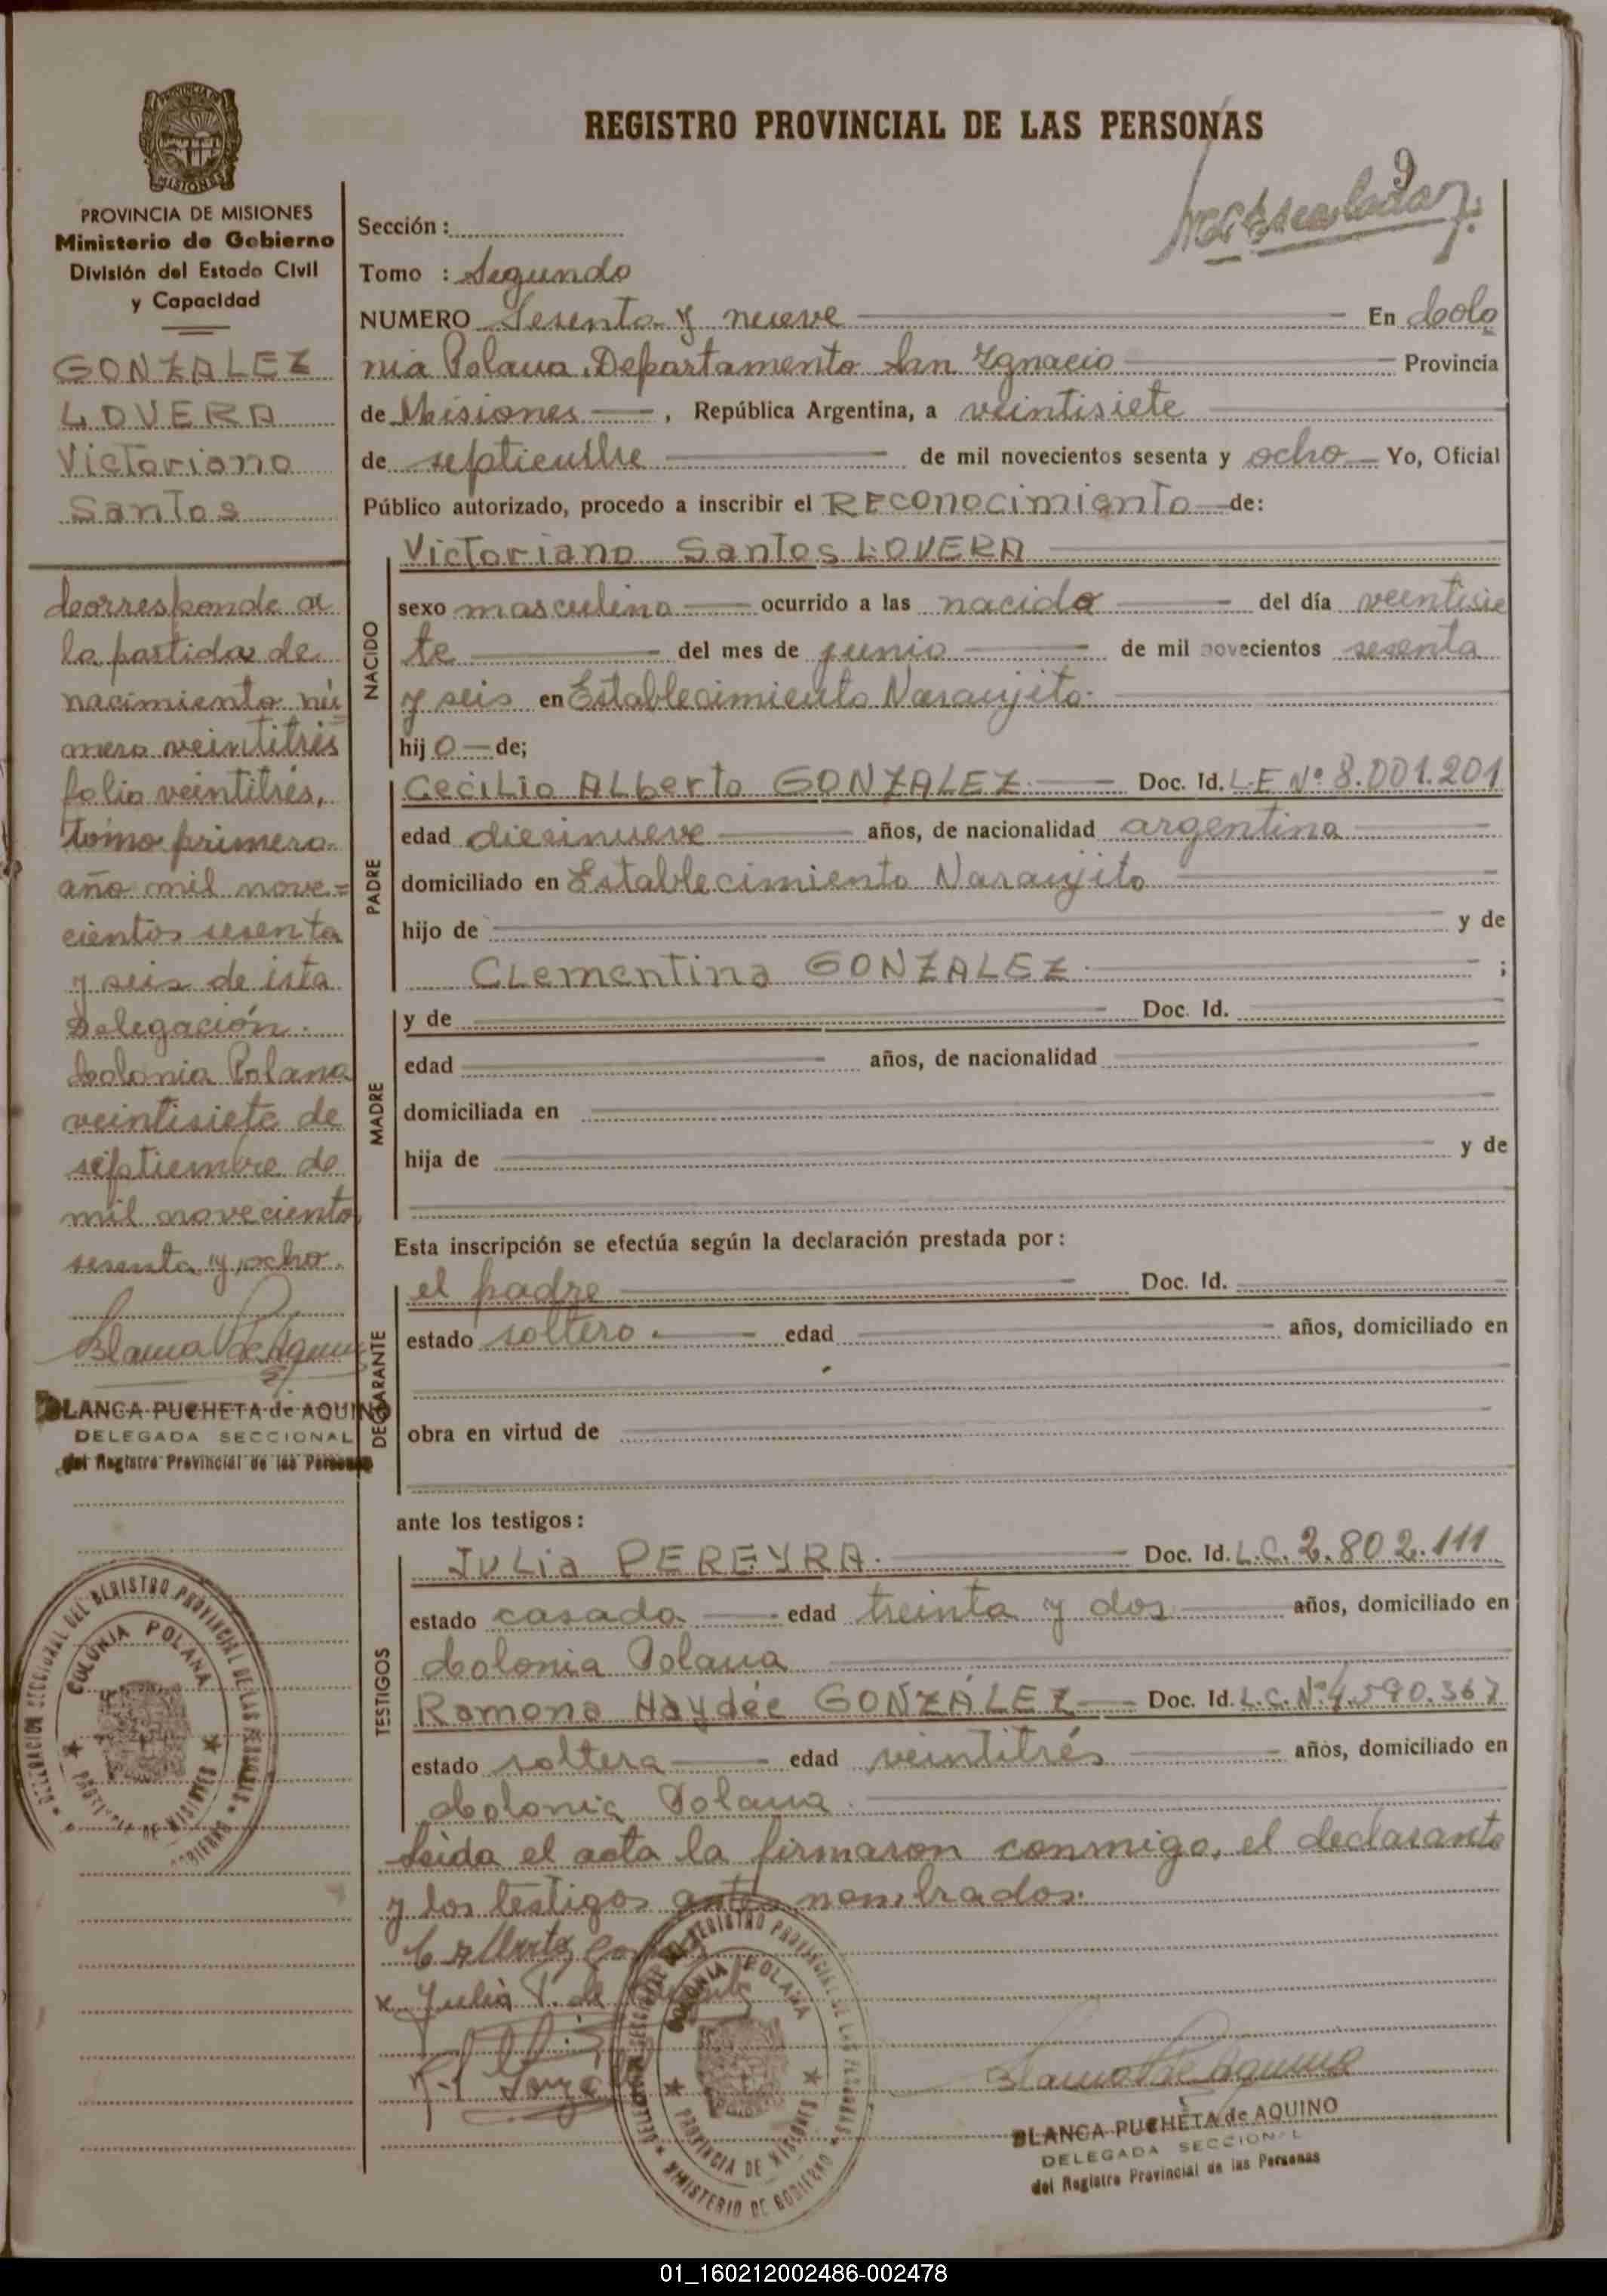 REGISTRO PROVINCIAL DE LAS PERSONAS
PROVINCIA DE MISIONES
Ministerio de Gobierno
División del Estado Civil
y Capacidad
GONZALEZ
LOVERA
Victoriano
Santos
Corresponde a
la partida de
nacimiento nú
mero veintitrés
folio veintitrés,
tomo primero
año mil nove=
cientos sesenta
y seis de ésta
Delegación.
Colonia Polana
veintisiete de
septiembre de
mil novecientos
sesenta y ocho.
BLANCA PUCHETA de AQUINO
DELEGADA SECCIONAL
del Registro Provincial de las Personas
9
Sección:
Tomo : Segundo
NUMERO Sesenta y nueve En Colo
nia Polana, Departamento San Ignacio Provincia
de Misiones , República Argentina, a veintisiete
de septiembre de mil novecientos sesenta y ocho Yo, Oficial
Público autorizado, procedo a inscribir el Reconocimiento de:
NACIDO
Victoriano Santos LOVERA
sexo masculino ocurrido a las nacido del día veintisie
te del mes de junio de mil novecientos sesenta
y seis en Establecimiento Naranjito.
hij o de;
PADRE
Cecilio Alberto GONZALEZ. Doc. Id. L.E Nº 8.001.201
edad diecinueve años, de nacionalidad argentina
domiciliado en Establecimiento Naranjito
hijo de y de
Clementina GONZALEZ. ;
MADRE
y de Doc. Id.
edad años, de nacionalidad
domiciliada en
hija de y de
Esta inscripción se efectúa según la declaración prestada por:
DECLARANTE
el padre Doc. Id.
estado soltero. edad años, domiciliado en
obra en virtud de
ante los testigos:
TESTIGOS
Julia PEREYRA. Doc. Id. L.C. 2.802.111
estado casada edad treinta y dos años, domiciliado en
Colonia Polana
Ramona Haydée GONZÁLEZ Doc. Id. L.C. Nº 4.590.367
estado soltera edad veintitrés años, domiciliado en
Colonia Polana.
Leída el acta la firmaron conmigo, el declarante
y los testigos antes nombrados.
DELEGACION SECCIONAL DEL REGISTRO PROVINCIAL DE LAS PERSONAS
COLONIA POLANA
PROVINCIA DE MISIONES
MINISTERIO DE GOBIERNO
BLANCA PUCHETA de AQUINO
DELEGADA SECCIONAL
del Registro Provincial de las Personas
01_160212002486-002478